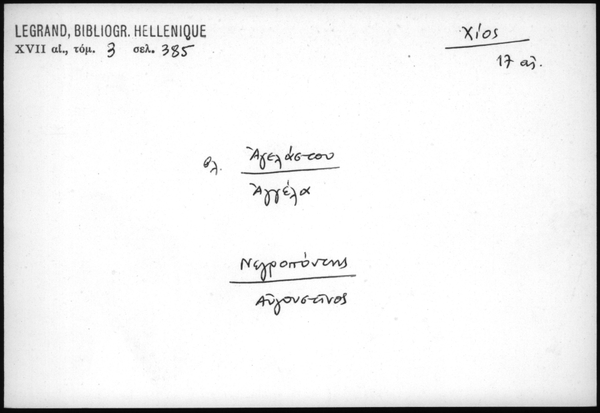 LEGRAND, BIBLIOGR. HELLENIQUE
XVII αἰ., τόμ. 3 σελ. 385
Χίος
17 αἰ.
βλ. Ἀγελάστου
Ἀγγέλα
Νεγροπόντης
Αὐγουστῖνος